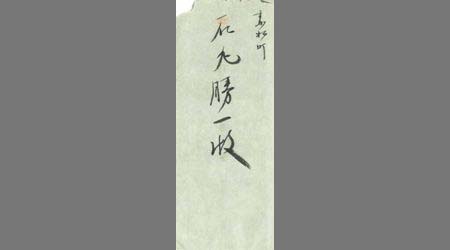 高松町
石丸勝一